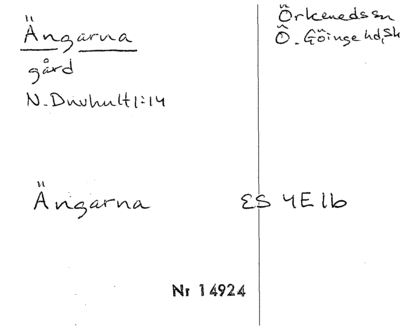 Ängarna
gård
N. Duvhult 1:14
Örkeneds sn
Ö. Göinge hd, Sk
Ängarna
ES 4E1b
Nr 14924